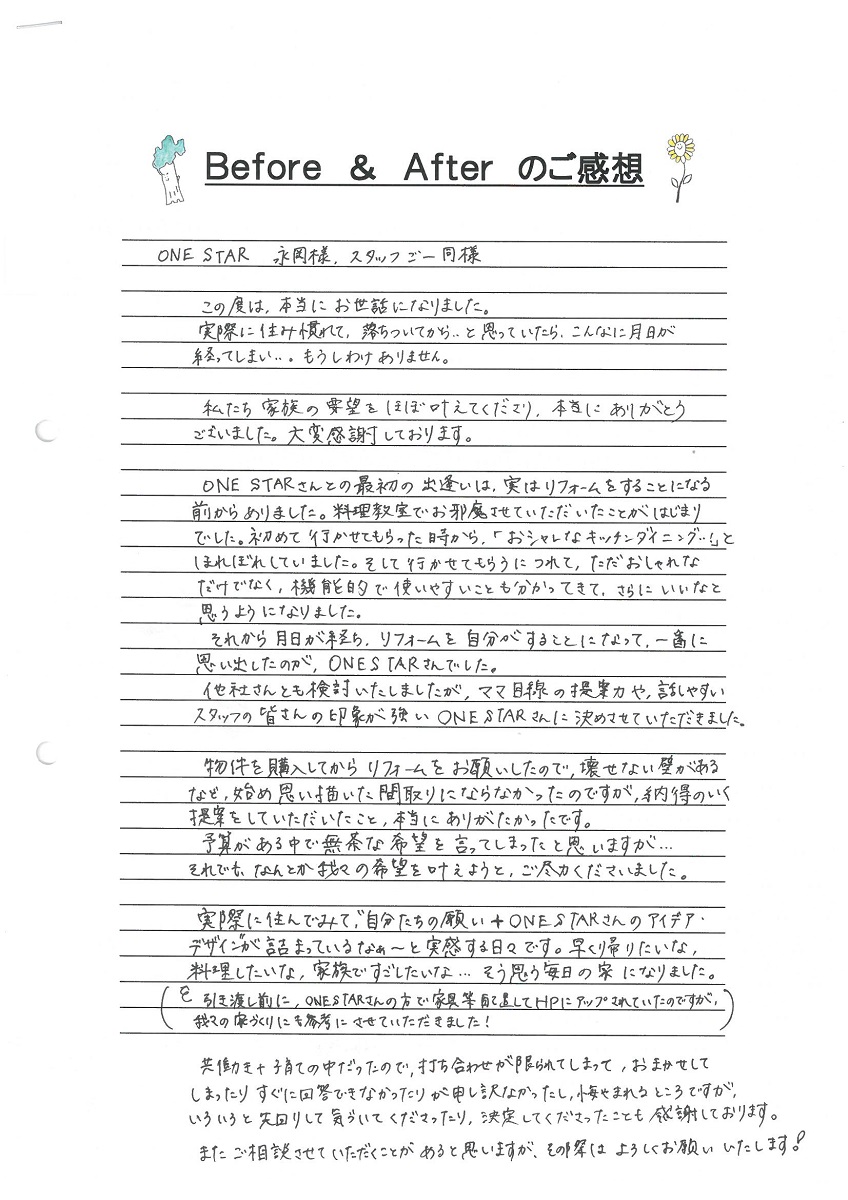 Before & After のご感想
ONE STAR 永岡様、スタッフご一同様
この度は、本当にお世話になりました。
実際に住み慣れて、落ちついてから‥と思っていたら、こんなに月日が
経ってしまい‥。もうしわけありません。
私たち家族の要望をほぼ叶えてくださり、本当にありがとう
ございました。大変感謝しております。
ONE STARさんとの最初の出逢いは、実はリフォームをすることになる
前からありました。料理教室でお邪魔させていただいたことがはじまり
でした。初めて行かせてもらった時から、「おシャレなキッチンダイニング‥!」と
ほれぼれしていました。そして行かせてもらうにつれて、ただおしゃれな
だけでなく、機能的で使いやすいことも分かってきて、さらにいいなと
思うようになりました。
それから月日が経ち、リフォームを自分がすることになって、一番に
思い出したのが、ONE STARさんでした。
他社さんとも検討いたしましたが、ママ目線の提案力や、話しやすい
スタッフの皆さんの印象が強いONE STARさんに決めさせていただきました。
物件を購入してからリフォームをお願いしたので、壊せない壁がある
など、始め思い描いた間取りにならなかったのですが、納得のいく
提案をしていただいたこと、本当にありがたかったです。
予算がある中で無茶な希望を言ってしまったと思いますが…
それでも、なんとか我々の希望を叶えようと、ご尽力くださいました。
実際に住んでみて、"自分たちの願い+ONE STARさんのアイデア・
デザイン"が詰まっているなぁ〜と実感する日々です。早くり帰りたいな、
料理したいな、家族ですごしたいな…そう思う毎日の家になりました。
(を引き渡し前に、ONE STARさんの方で家具等してHPにアップされていたのですが、
我々の家づくりにも参考にさせていただきました!)
共働き+子育ての中だったので、打ち合わせが限られてしまって、おまかせして
しまったりすぐに回答できなかったりが申し訳なかったし、悔やまれるところですが、
いろいろと先回りして気づいてくださったり、決定してくださったことも感謝しております。
またご相談させていただくことがあると思いますが、その際はよろしくお願いいたします!